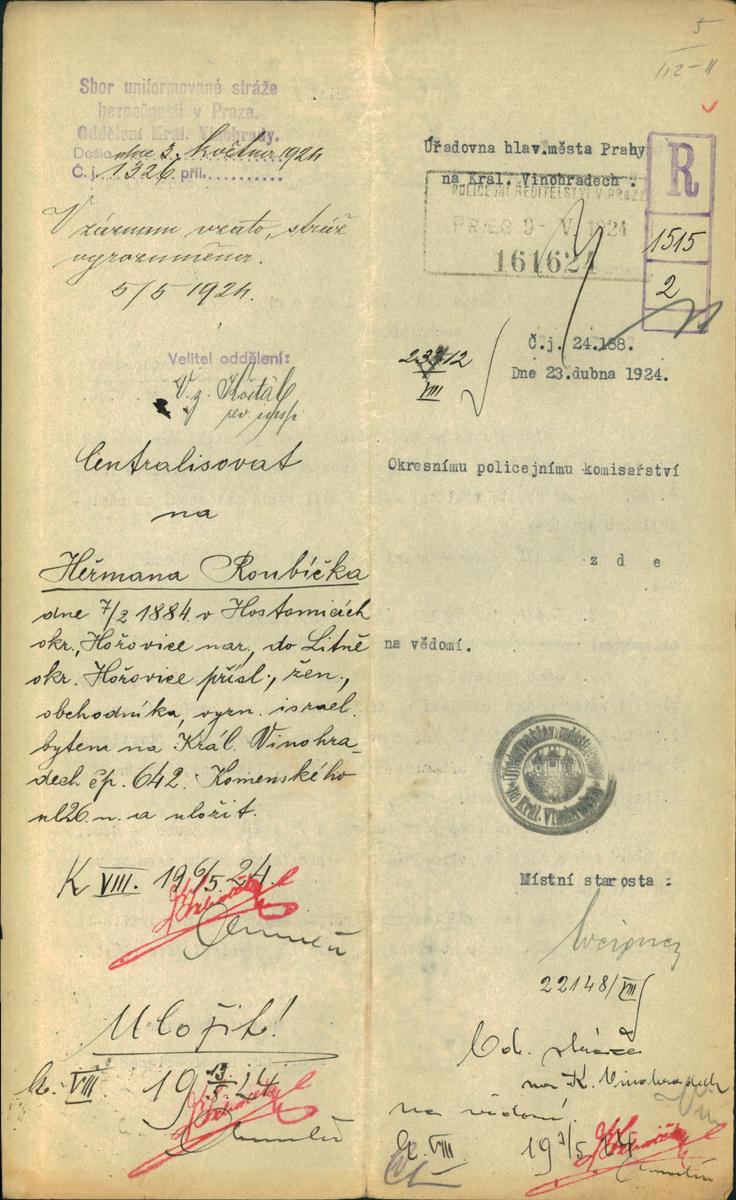 Sbor uniformované stráže
bezpečnosti v Praze.
Oddělení Král. Vinohrady.
Došlo dne 3. května 1924
Č. j. 1326 příl..........
V záznam vzato, stráž
vyrozuměna.
5/5 1924.
Velitel oddělení:
V. z.
Centralisovat
na
Heřmana Roubíčka
dne 7/2 1884 v Hostomicích
okr. Hořovice nar., do Litně
okr. Hořovice přísl., žen.,
obchodníka, vyzn. israel.
bytem na Král. Vinohra-
dech čp. 642. Komenského
ul 26. n. a uložit.
K VIII. 19 6/5 24.
Uložit!
K. VIII 19 13/5 24
5
112-11
Úřadovna hlav.města Prahy
na Král. Vinohradech :
POLICEJNÍ ŘEDITELSTVÍ V PRAZE
PRAEG 9-V. 1924
161624
R
1515
2
Č.j. 24.188.
Dne 23.dubna 1924.
VIII
Okresnímu policejnímu komisařství
z d e
na vědomí.
Úřadovna hlav. města Prahy
na Král. Vinohradech
Místní starosta :
22148/VIII
Od. stráže
na K. Vinohradech
na vědomí
K. VIII 19 /5 24